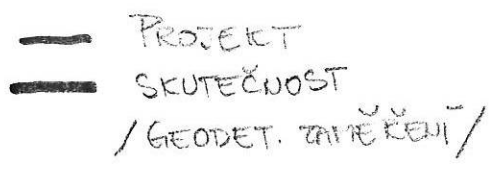 PROJEKT
SKUTEČNOST
/GEODET. ZAMĚŘENÍ/